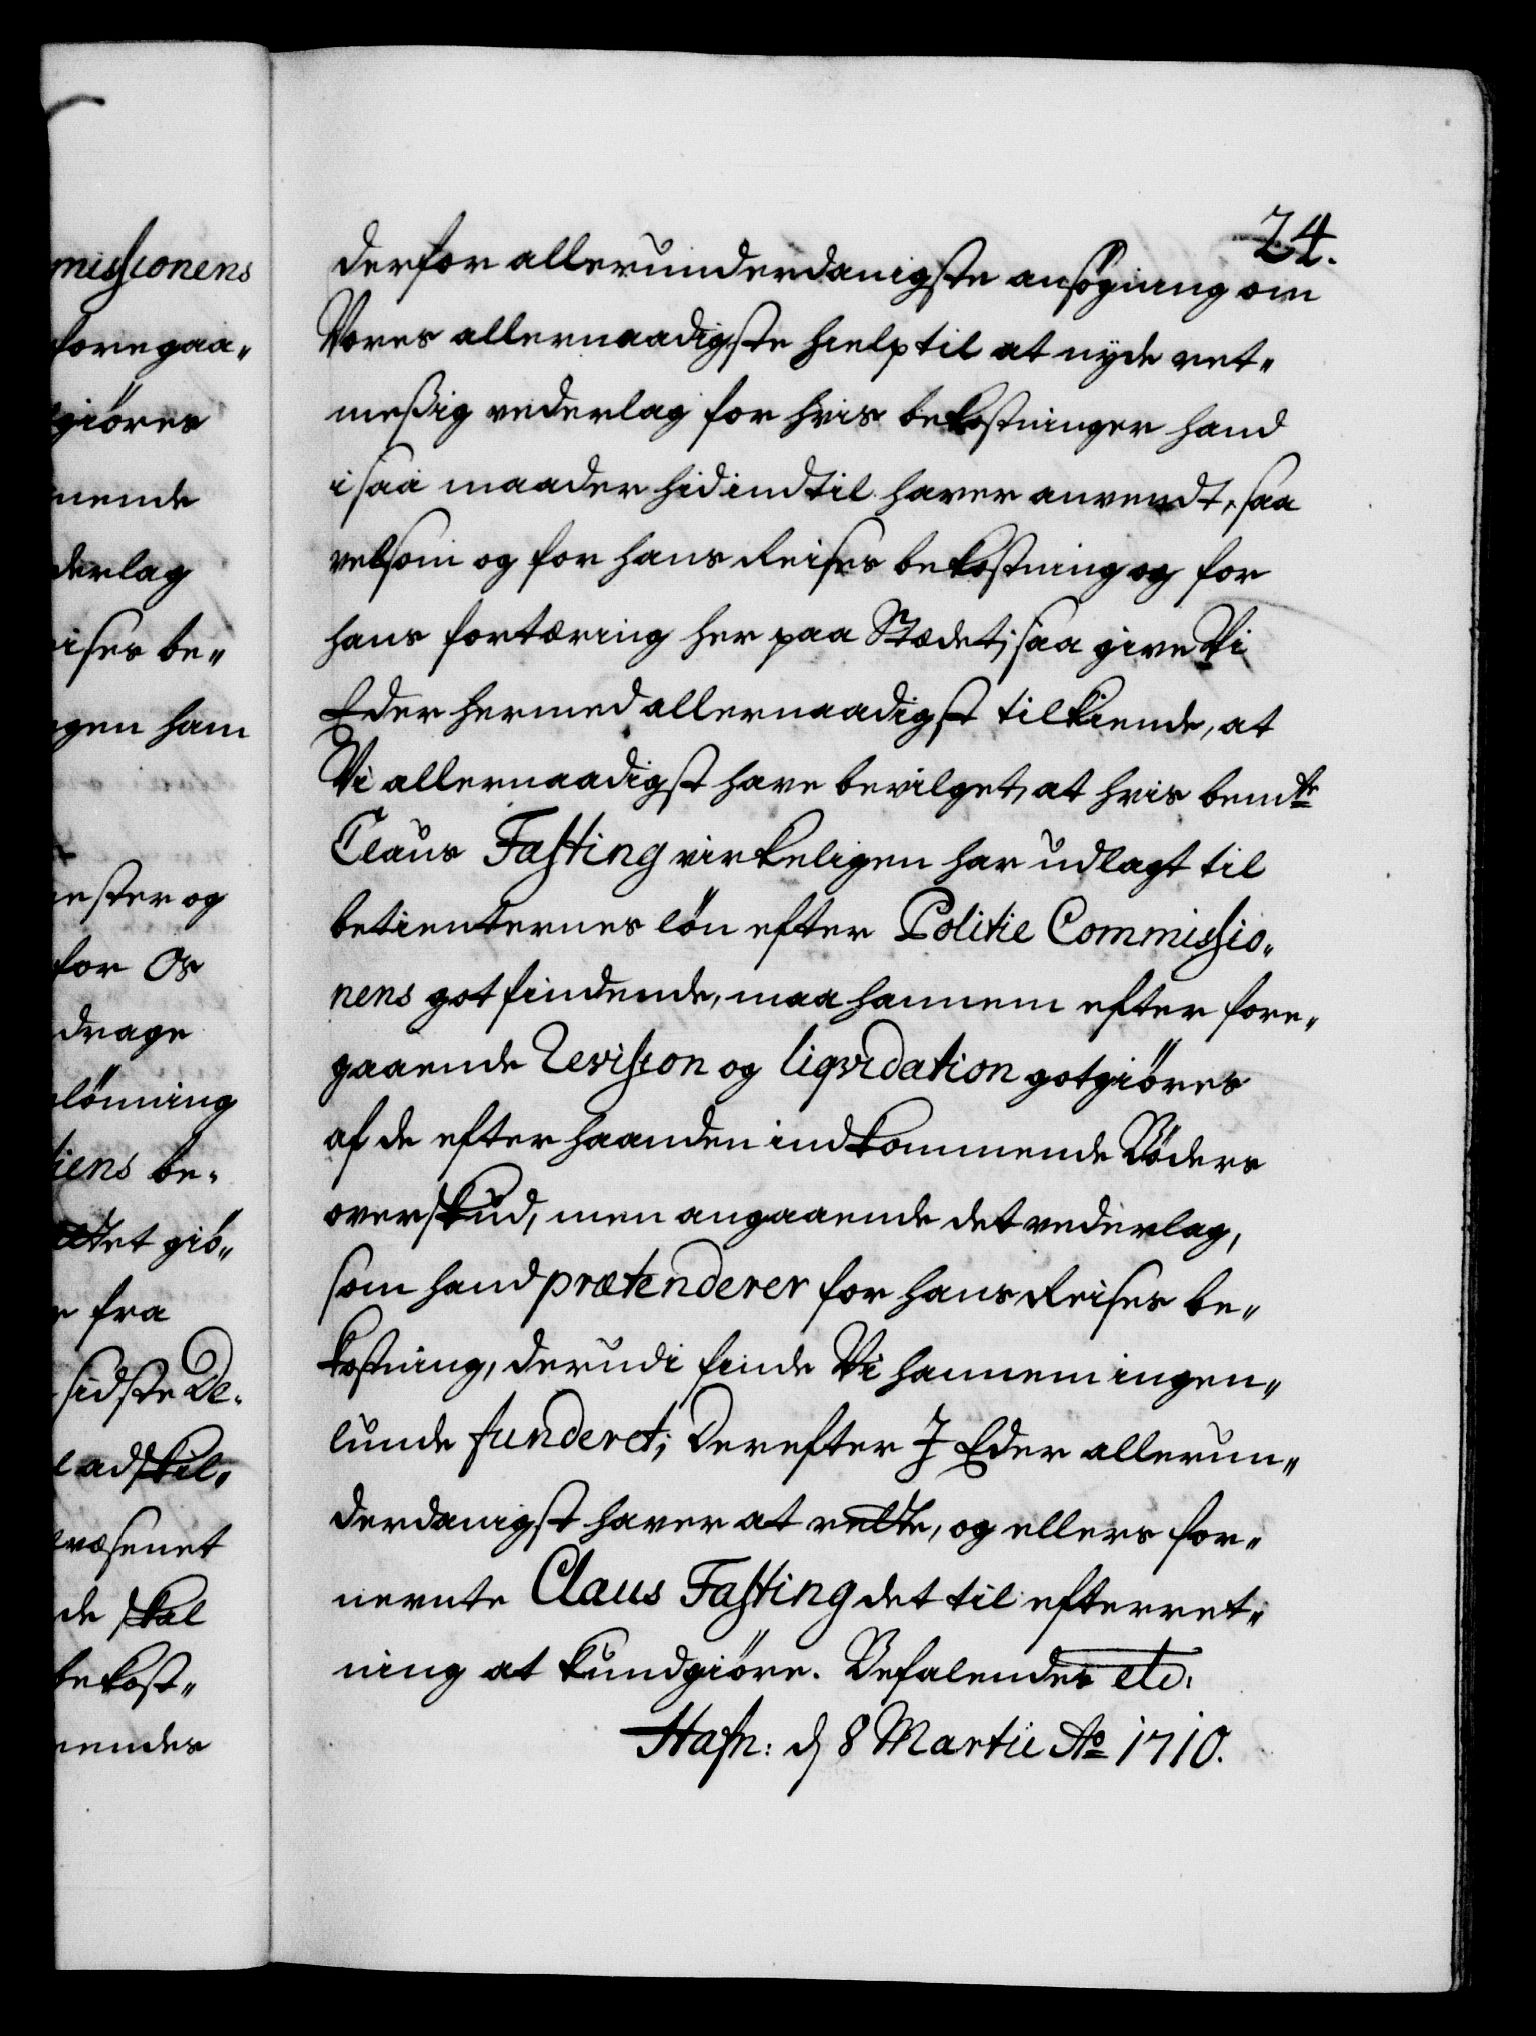 missionens
foregaa„
giöres
nende
derlag
eises be„
gen ham
ester og
for Os
drage
lönning
tiens be„
ettet giö„
fra
sidste De„
adskil„
væsenet
de skal
bekost„
endes
24.
derfor allerunderdanigste ansøgning om
Vores allernaadigste hielp til at nyde ret„
meßig vederlag for hvis bekostninger hand
i saa maader hid indtil haver anvendt, saa
velsom og for hans Reises bekostning og for
hans fortæring her paa Stædet; saa give Vi
Eder hermed allernaadigst tilkiende, at
Vi allernaadigst have bevilget, at hvis bemte
Claus Fasting virkeligen har udlagt til
betienternes lön efter Politie Commissio„
nens gotfindende, maa hannem efter fore„
gaaende Revision og liqvidation gotgiöres
af de efter haanden indkommende Böders
overskud, men angaaende det vederlag,
som hand prætenderer for hans Reises be„
kostning, derudi finde Vi hannem ingen„
lunde funderet; Derefter I Eder allerun„
derdanigst haver at rette, og ellers for„
nevnte Claus Fasting det til efterret„
ning at kundgiöre. Befalendes etc:
Hafn: d 8 Martii Ao 1710.